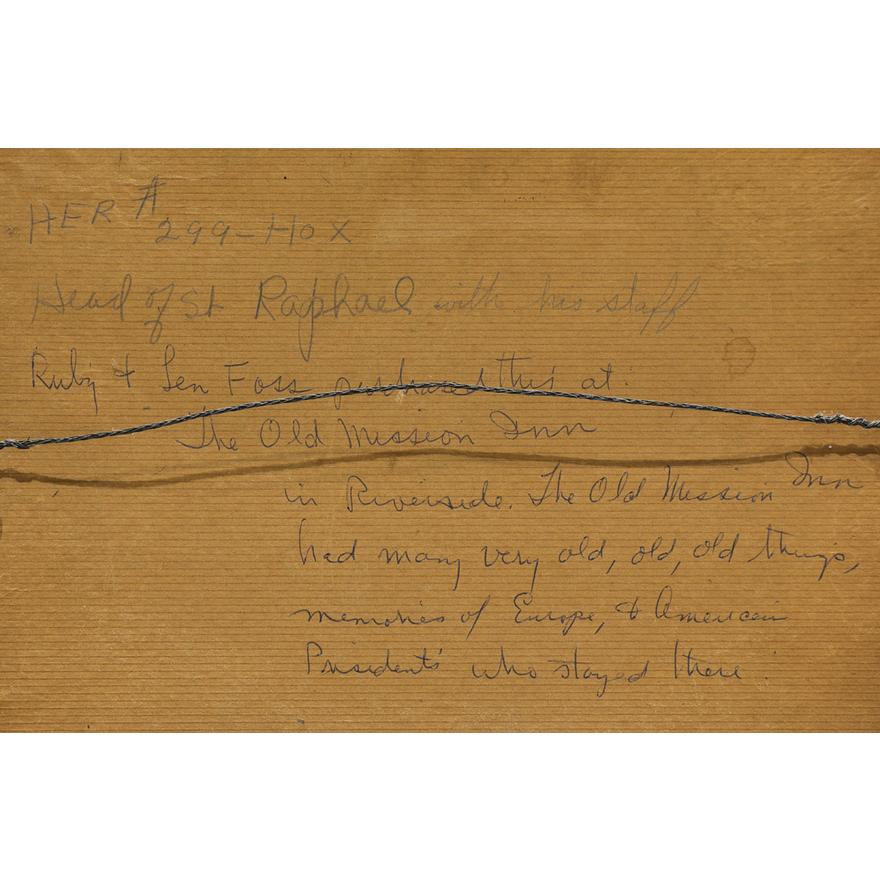 HER #
299-HOX
Head of St Raphael with his staff
Ruby + Len Foss purchased this at:
The Old Mission Inn
in Riverside. The Old Mission Inn
had many very old, old, old things,
memories of Europe, & American
Presidents' who stayed there.